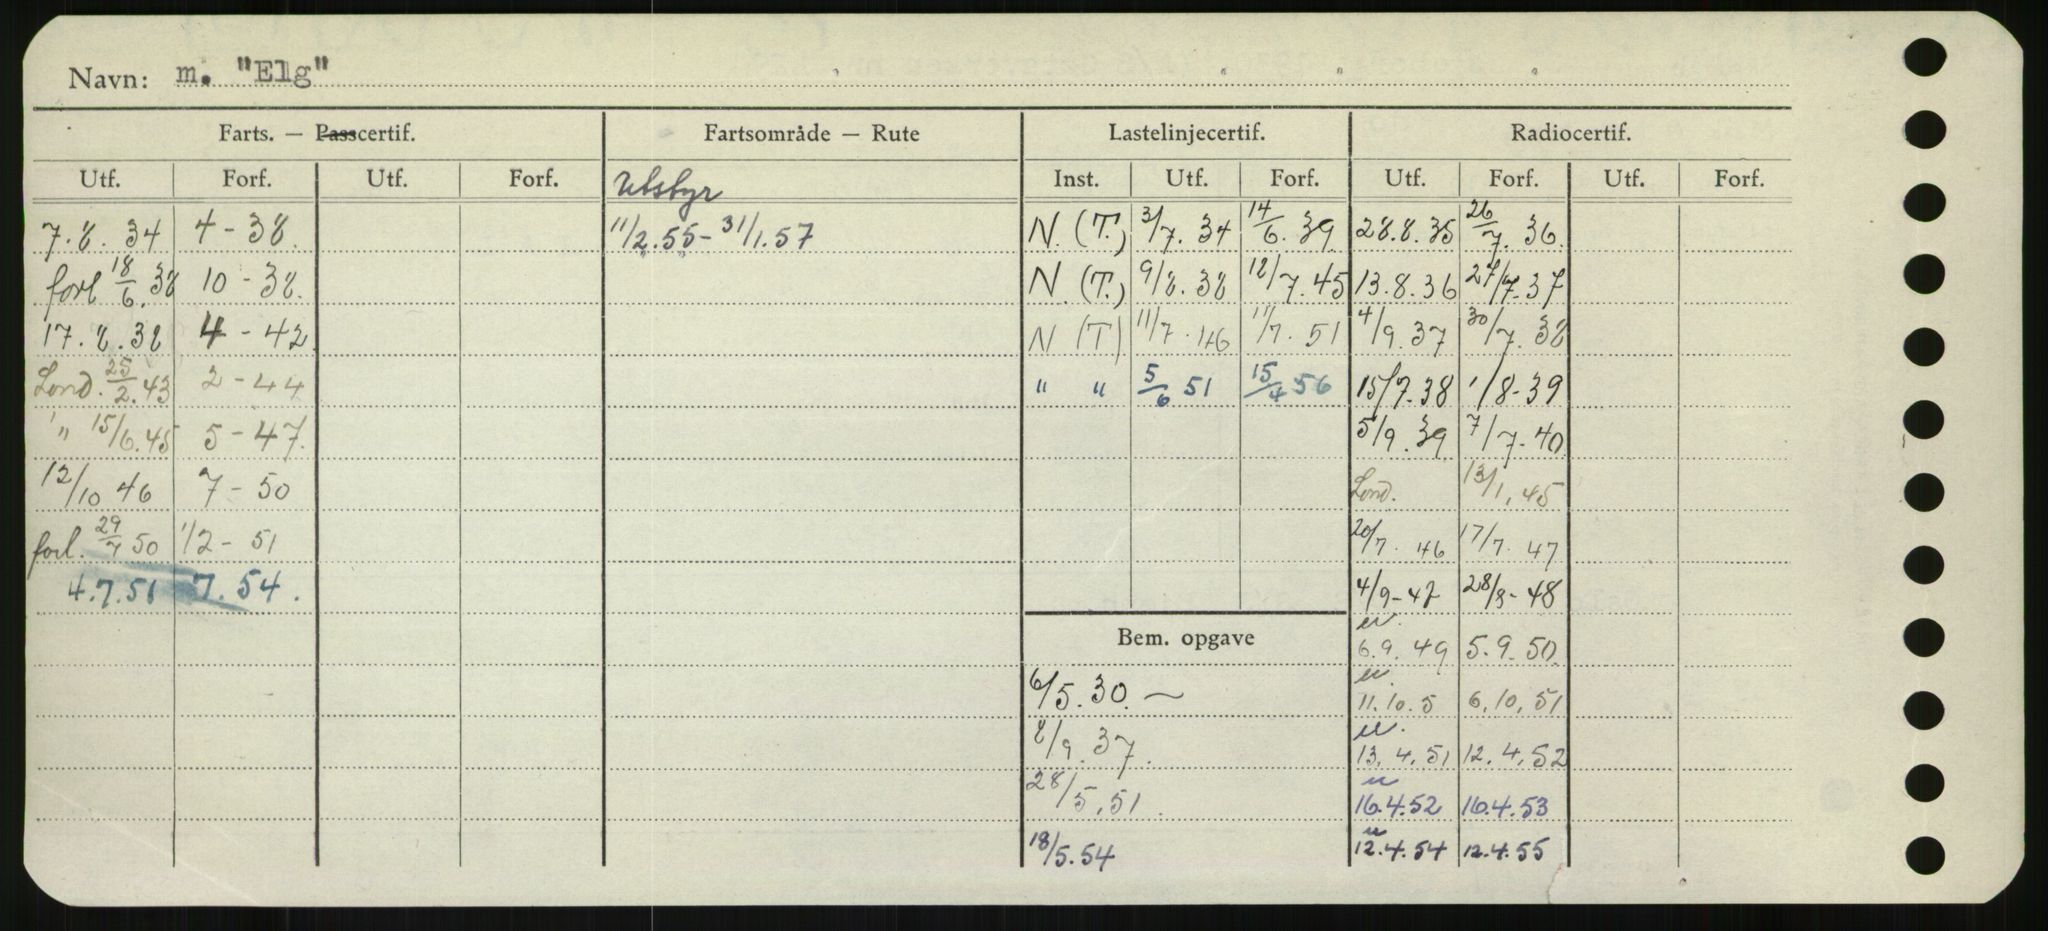 Navn: m. "Elg"
Farts. — Passcertif. Fartsområde — Rute Lastelinjecertif. Radiocertif.
Utf. Forf. Utf. Forf. Utstyr Inst. Utf. Forf. Utf. Forf. Utf. Forf.
7.8.34 4-38. 11/2.55-31/1.57 N. (T.) 3/7.34 14/6.39 28.8.35 26/7.36.
forl 18/6.38 10-38. N. (T.) 9/8.38 12/7.45 13.8.36 27/7-37
17.8.38 4-42 N (T) 11/7.46 11/7.51 4/9.37 30/7.38
Lond. 25/2.43 2-44 " " 5/6 51 15/4 56 15/7.38 1/8-39
" 15/6.45 5-47. 5/9.39 7/7-40
12/10 46 7-50 Lond. 13/1.45
forl. 29/7 50 1/2-51 20/7.46 17/7.47
4.7.51 7.54. 4/9-47 28/8-48
Bem. opgave 6.9.49 5.9.50
6/5.30. — 11.10.5 6.10.51
8/9.37. 13.4.51 12.4.52
28/5.51. 16.4.52 16.4.53
18/5.54 12.4.54 12.4.55